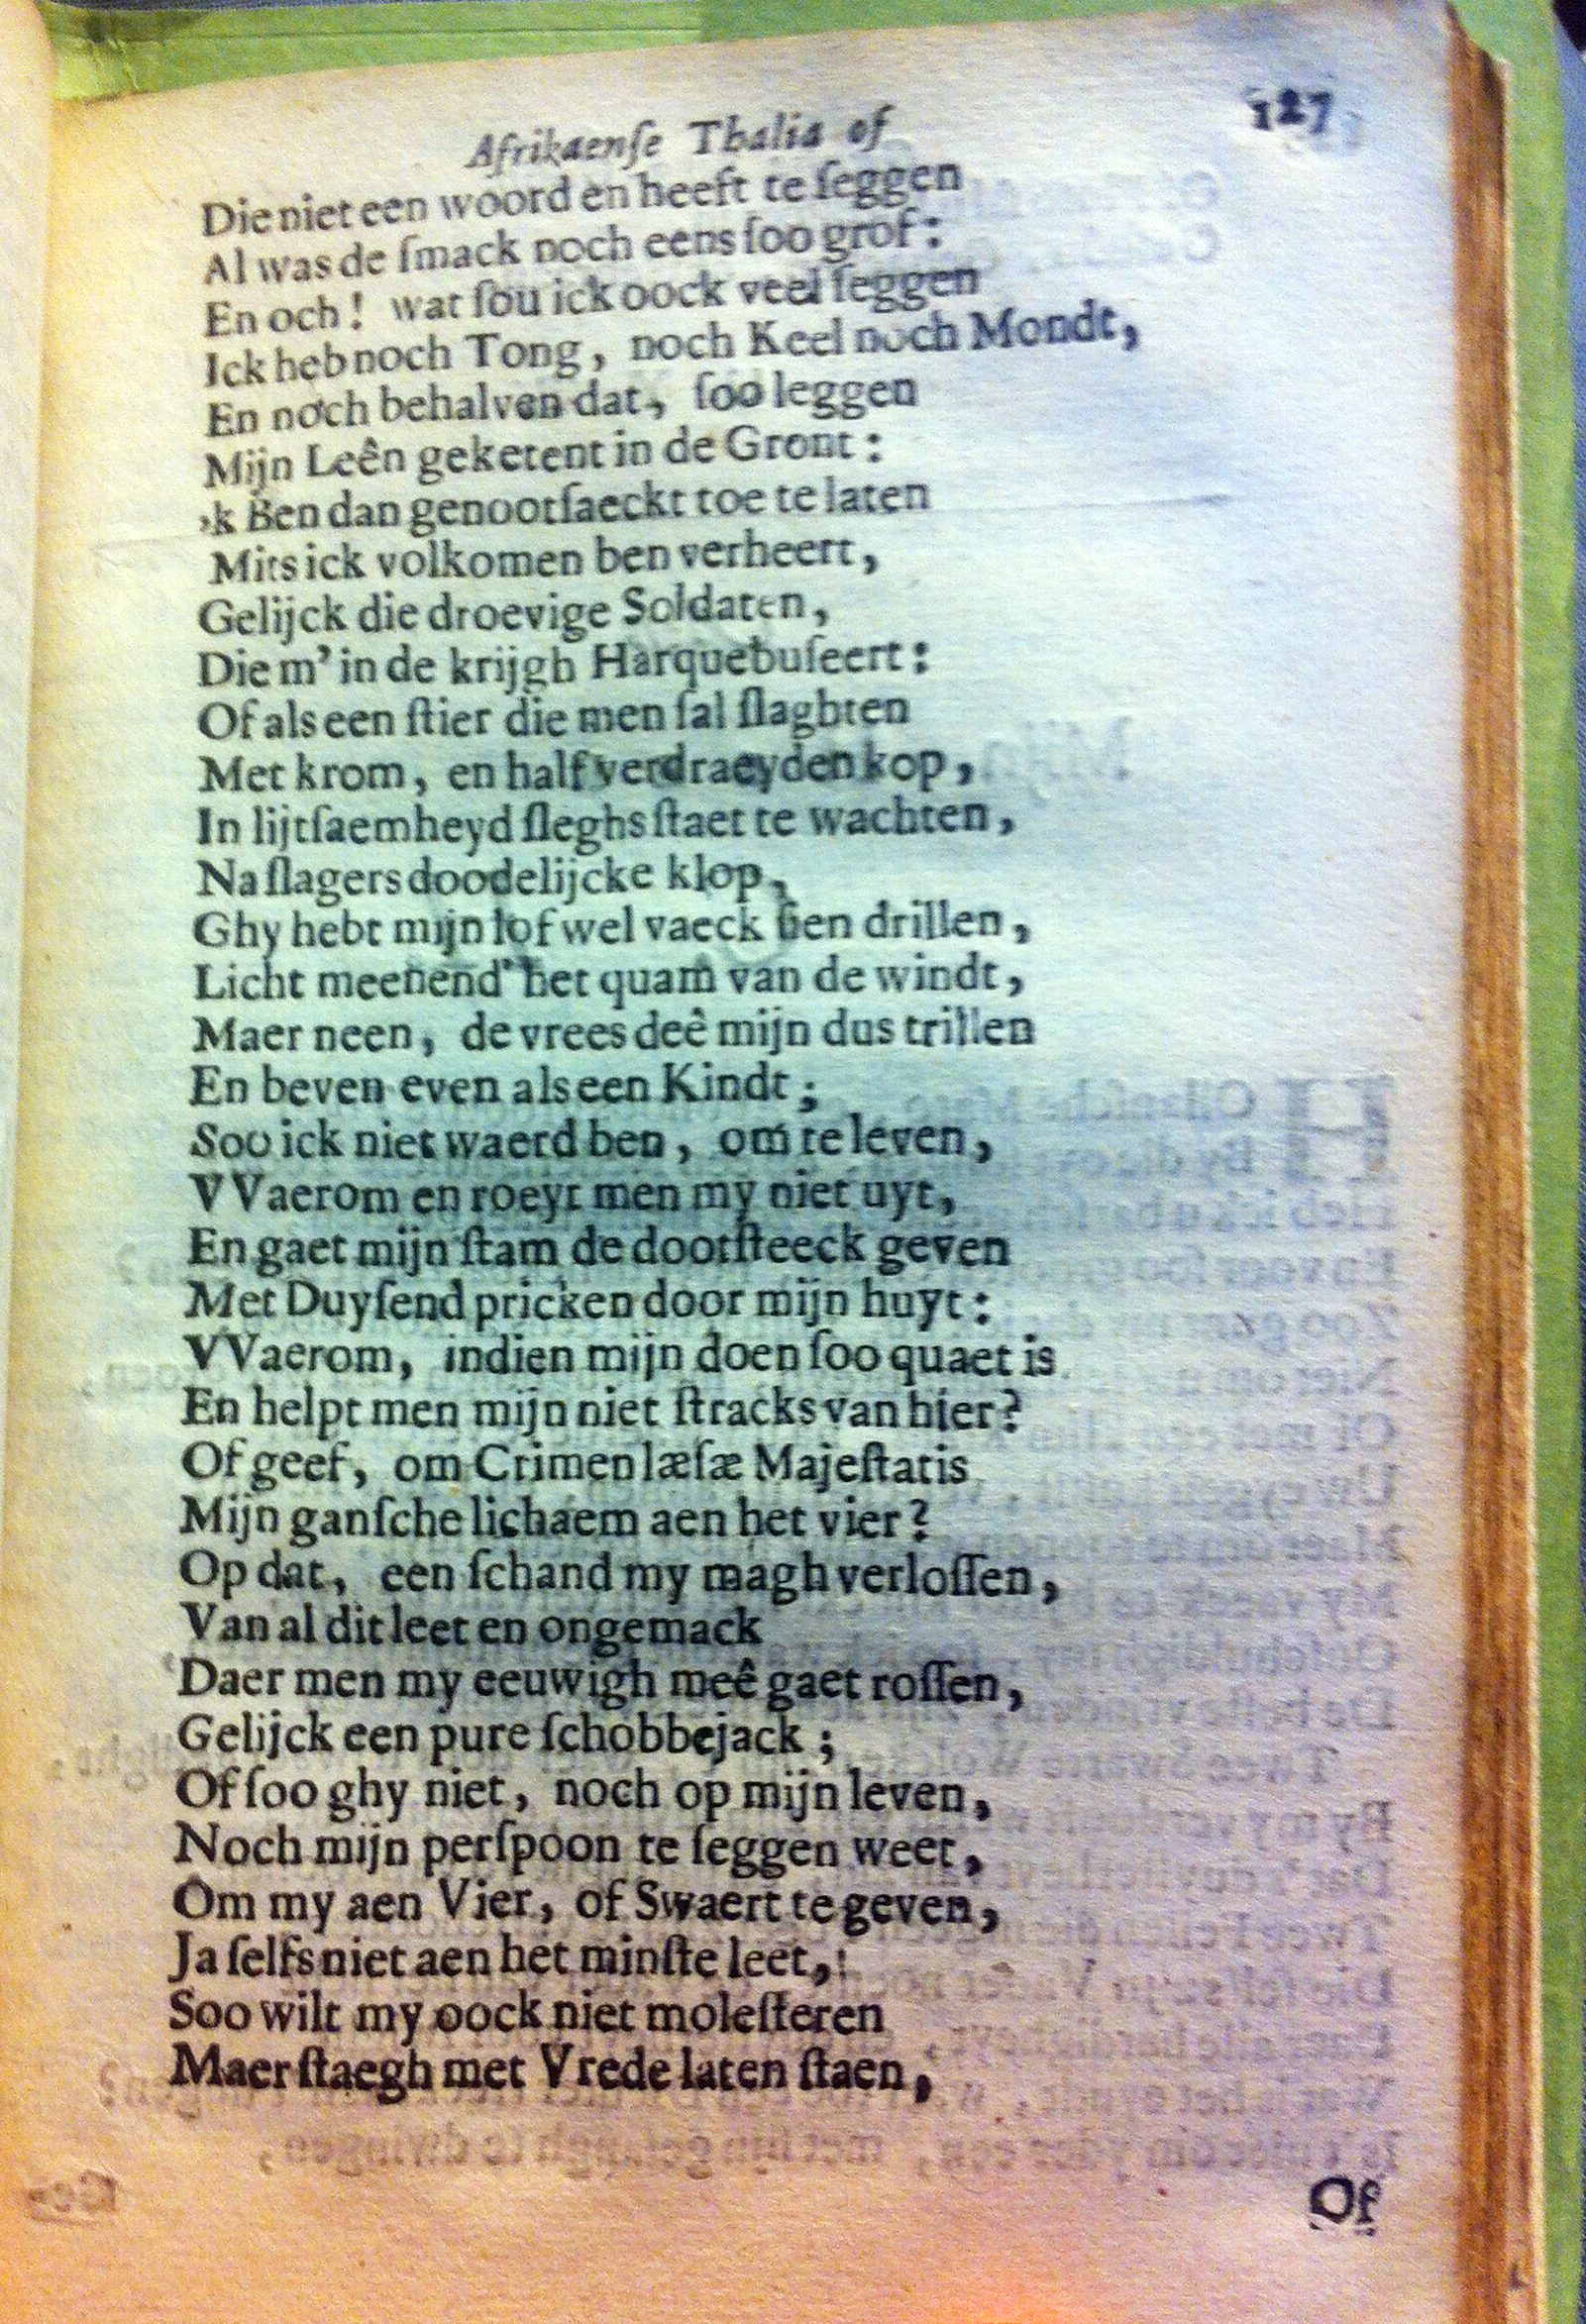 Afrikaenſe Thalia of 127
Die niet een woord en heeft te ſeggen
Al was de ſmack noch eens ſoo grof:
En och! wat ſou ick oock veel ſeggen
Ick heb noch Tong, noch Keel noch Mondt,
En noch behalven dat, ſoo leggen
Mijn Leên geketent in de Gront:
,k Ben dan genootſaeckt toe te laten
Mits ick volkomen ben verheert,
Gelijck die droevige Soldaten,
Die m' in de krijgh Harquebuſeert:
Of als een ſtier die men ſal ſlaghten
Met krom, en half verdraeyden kop,
In lijtſaemheyd ſleghs ſtaet te wachten,
Na ſlagers doodelijcke klop,
Ghy hebt mijn lof wel vaeck ſien drillen,
Licht meenend' het quam van de windt,
Maer neen, de vrees deê mijn dus trillen
En beven even als een Kindt;
Soo ick niet waerd ben, om te leven,
VVaerom en roeyt men my niet uyt,
En gaet mijn ſtam de dootſteeck geven
Met Duyſend pricken door mijn huyt:
VVaerom, indien mijn doen ſoo quaet is
En helpt men mijn niet ſtracks van hier?
Of geef, om Crimen læſæ Majeſtatis
Mijn ganſche lichaem aen het vier?
Op dat, een ſchand my magh verloſſen,
Van al dit leet en ongemack
Daer men my eeuwigh meê gaet roſſen,
Gelijck een pure ſchobbejack;
Of ſoo ghy niet, noch op mijn leven,
Noch mijn perſpoon te ſeggen weet,
Om my aen Vier, of Swaert te geven,
Ja ſelfs niet aen het minſte leet,
Soo wilt my oock niet moleſteren
Maer ſtaegh met Vrede laten ſtaen,
Of